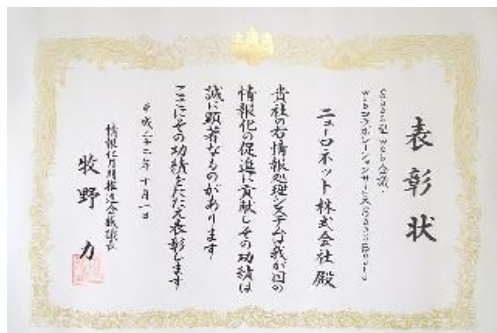 表彰状
SaaS型web会議・
webコラボレーションサービスSaasBoard
ニューロネット株式会社 殿
貴社の右情報処理システムは我が国の
情報化の促進に貢献しその功績は
誠に顕著なものがあります
ここにその功績をたたえ表彰します
平成二十二年十月一日
情報化月間推進会議議長
牧野 力